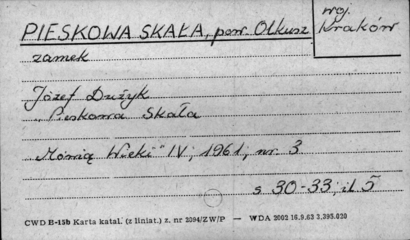 PIESKOWA SKAŁA, pow. Olkusz
woj. Kraków
zamek
Józef Dużyk
„Pieskowa Skała
„Mówią Wieki" IV, 1961, nr. 3
s 30-33; il 5
CWD B-15b Karta katal. (z liniat.) z. nr 3094/ZW/P — WDA 2002 16.9.63 3.395.020